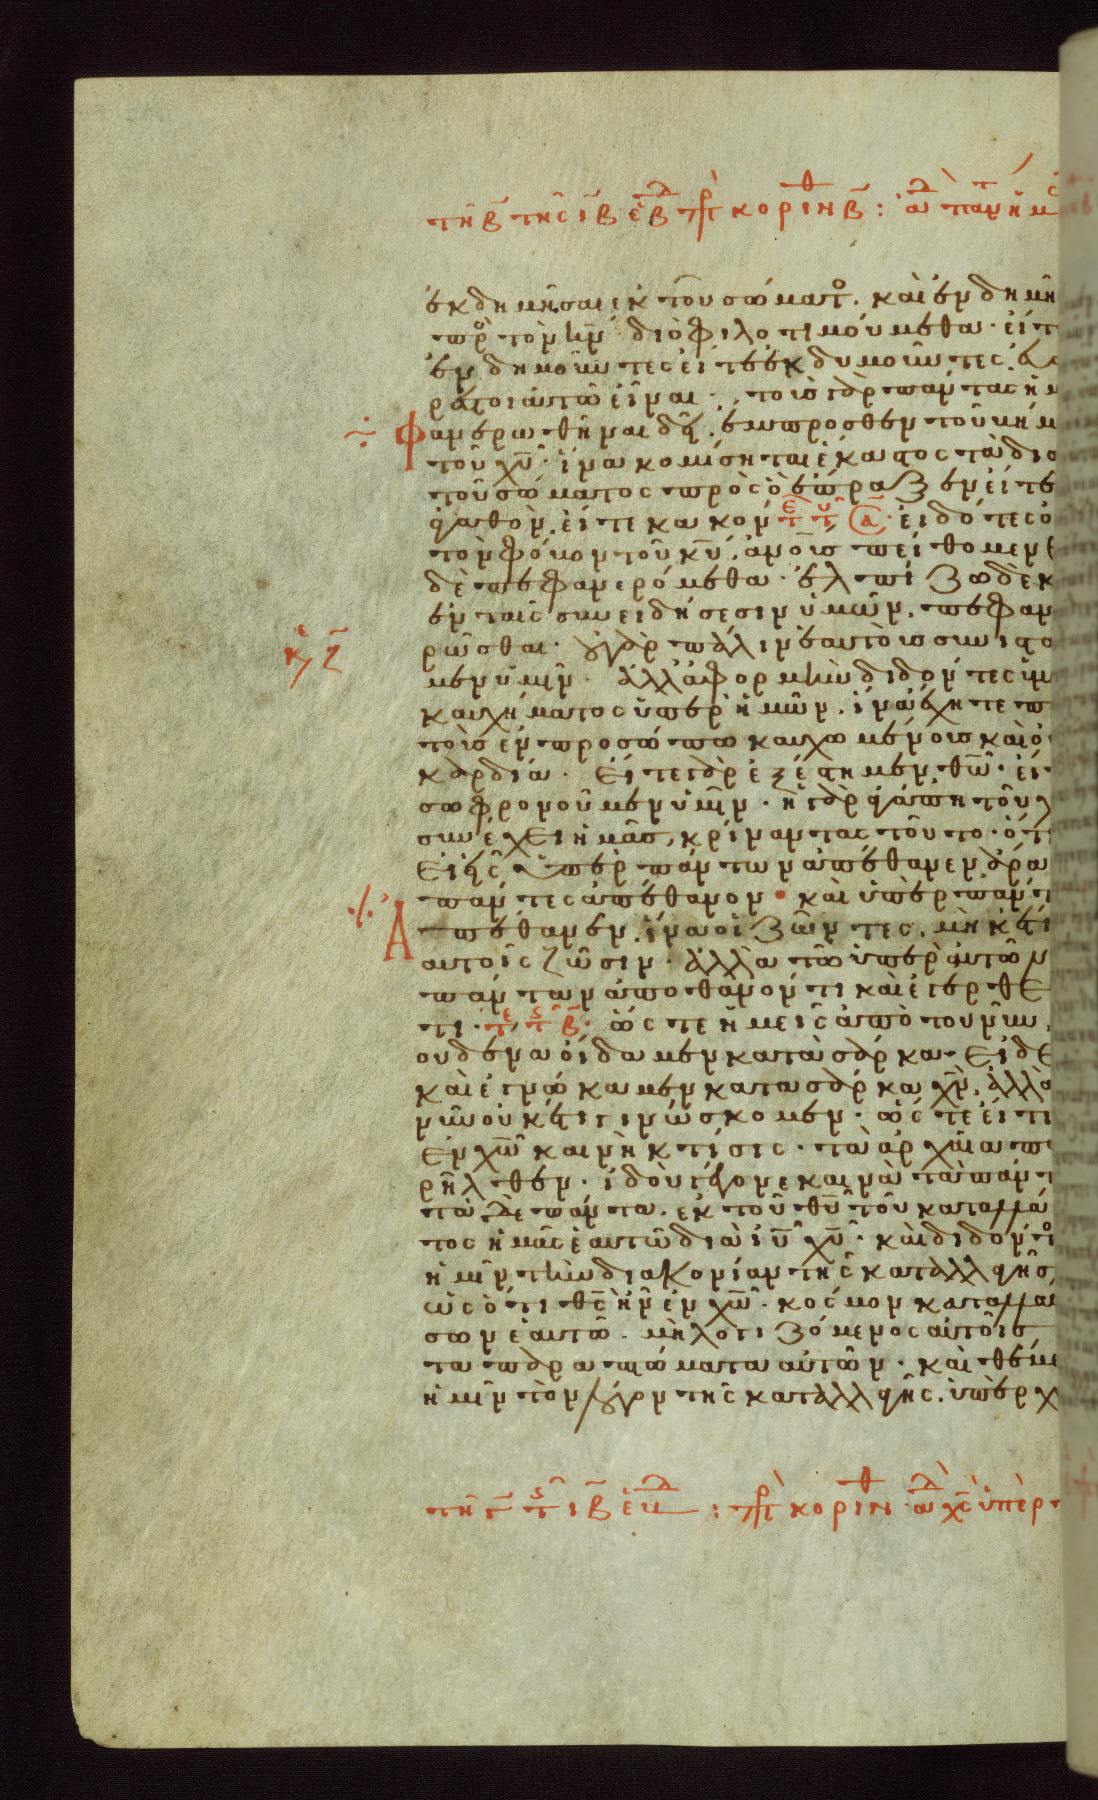 τῆ β τῆς ιβ εβδ πρ κορινθ β : ἀδ παν ἡμ
ἐκδημῆσαι ἐκ τοῦ σώματο. καὶ ἐνδημῆ
πρὸ τὸν κν· διὸ φιλοτιμούμεθα· εἴτ
ἐνδημοῦντες εἴτε ἐκδυμοῦντες εὐα
ρεστοι αὐτῶ εἶναι· τοὺσ γὰρ πάντας ἡμ
Φανερωθῆναι δεῖ. ἔμπροσθεν τοῦ βήμ
τοῦ χυ· ἵνα κομίσηται ἕκαστος τὰ δια
τοῦ σώματος πρὸς ὃ ἔπραξεν εἴτε
ἀγαθὸν, εἴτε κακόν τε τ α· εἰδότες ο
τὸν φόβον τοῦ κυ, ἀνοῖσ πείθομεν
δὲ πεφανερόμεθα· ἐλπίζω δὲ κ
ἐν ταῖς συνειδήσεσιν ὑμῶν. πεφαν
κε ζ
ρῶσθαι· οὐ γὰρ πάλιν ἑαυτοὺσ συνιστα
μεν ὑμῖν· ἀλλὰ ἀφορμὴν διδόντες ὑμ
καυχήματος ὑπὲρ ἡμῶν. ἵνα ἔχητε π
τοὺσ ἐν προσώπω καυχωμένουσ καὶ ο
καρδία· Εἴτε γὰρ ἐξέστημεν, θῶ· εἴ
σωφρονοῦμεν ὑμῖν· ἡ γὰρ ἀγάπη τοῦ χ
συνέχει ἡμᾶσ, κρίναντας τοῦτο· ὅτι
Εἰ εἷς ὑπὲρ πάντων ἀπέθανεν ἄρα
πάντες ἀπέθανον· καὶ ὑπὲρ πάντ
Ἀπέθανεν. ἵνα οἱ ζῶντες, μηκέτι
αὐτοῖς ζῶσιν· ἀλλὰ τῶ ὑπὲρ αὐτῶν
πάντων ἀποθανόντι καὶ ἐγερθέ
τι· τε τς β· ὥς τε ἡμεῖς ἀπὸ τοῦ νῦν,
οὐδένα οἴδαμεν κατὰ σάρκα· Εἰ δὲ
καὶ ἐγνώκαμεν κατα σάρκα χν, ἀλλὰ
νῦν οὐκέτι γινώσκομεν· ὥς τε εἴ τι
Εν χω καινὴ κτίσις· τὰ ἀρχαῖα πα
ρῆλθεν· ἰδοὺ γέγονε καινὰ τὰ πάντ
τὰ δὲ πάντα. ἐκ τοῦ θυ τοῦ καταλλά
τος ἡμᾶς ἑαυτῶ διὰ ιυ χυ· καὶ διδόντο
ἡμῖν τὴν διακονίαν τῆς καταλλαγῆσ
ὡς ὅτι θς ἦν ἐν χω· κόσμον καταλλάσ
σων ἑαυτῶ· μὴ λογιζόμενος αὐτοῖσ
τα παραπτώματα αὐτῶν· καὶ θέμε
ἡμῖν τὸν λόγον τῆς καταλλαγῆς. ὑπὲρ χ
τῆ γ τς ιβ εβδ : πρ κορινθ ἀδ χς ὑπὲρ